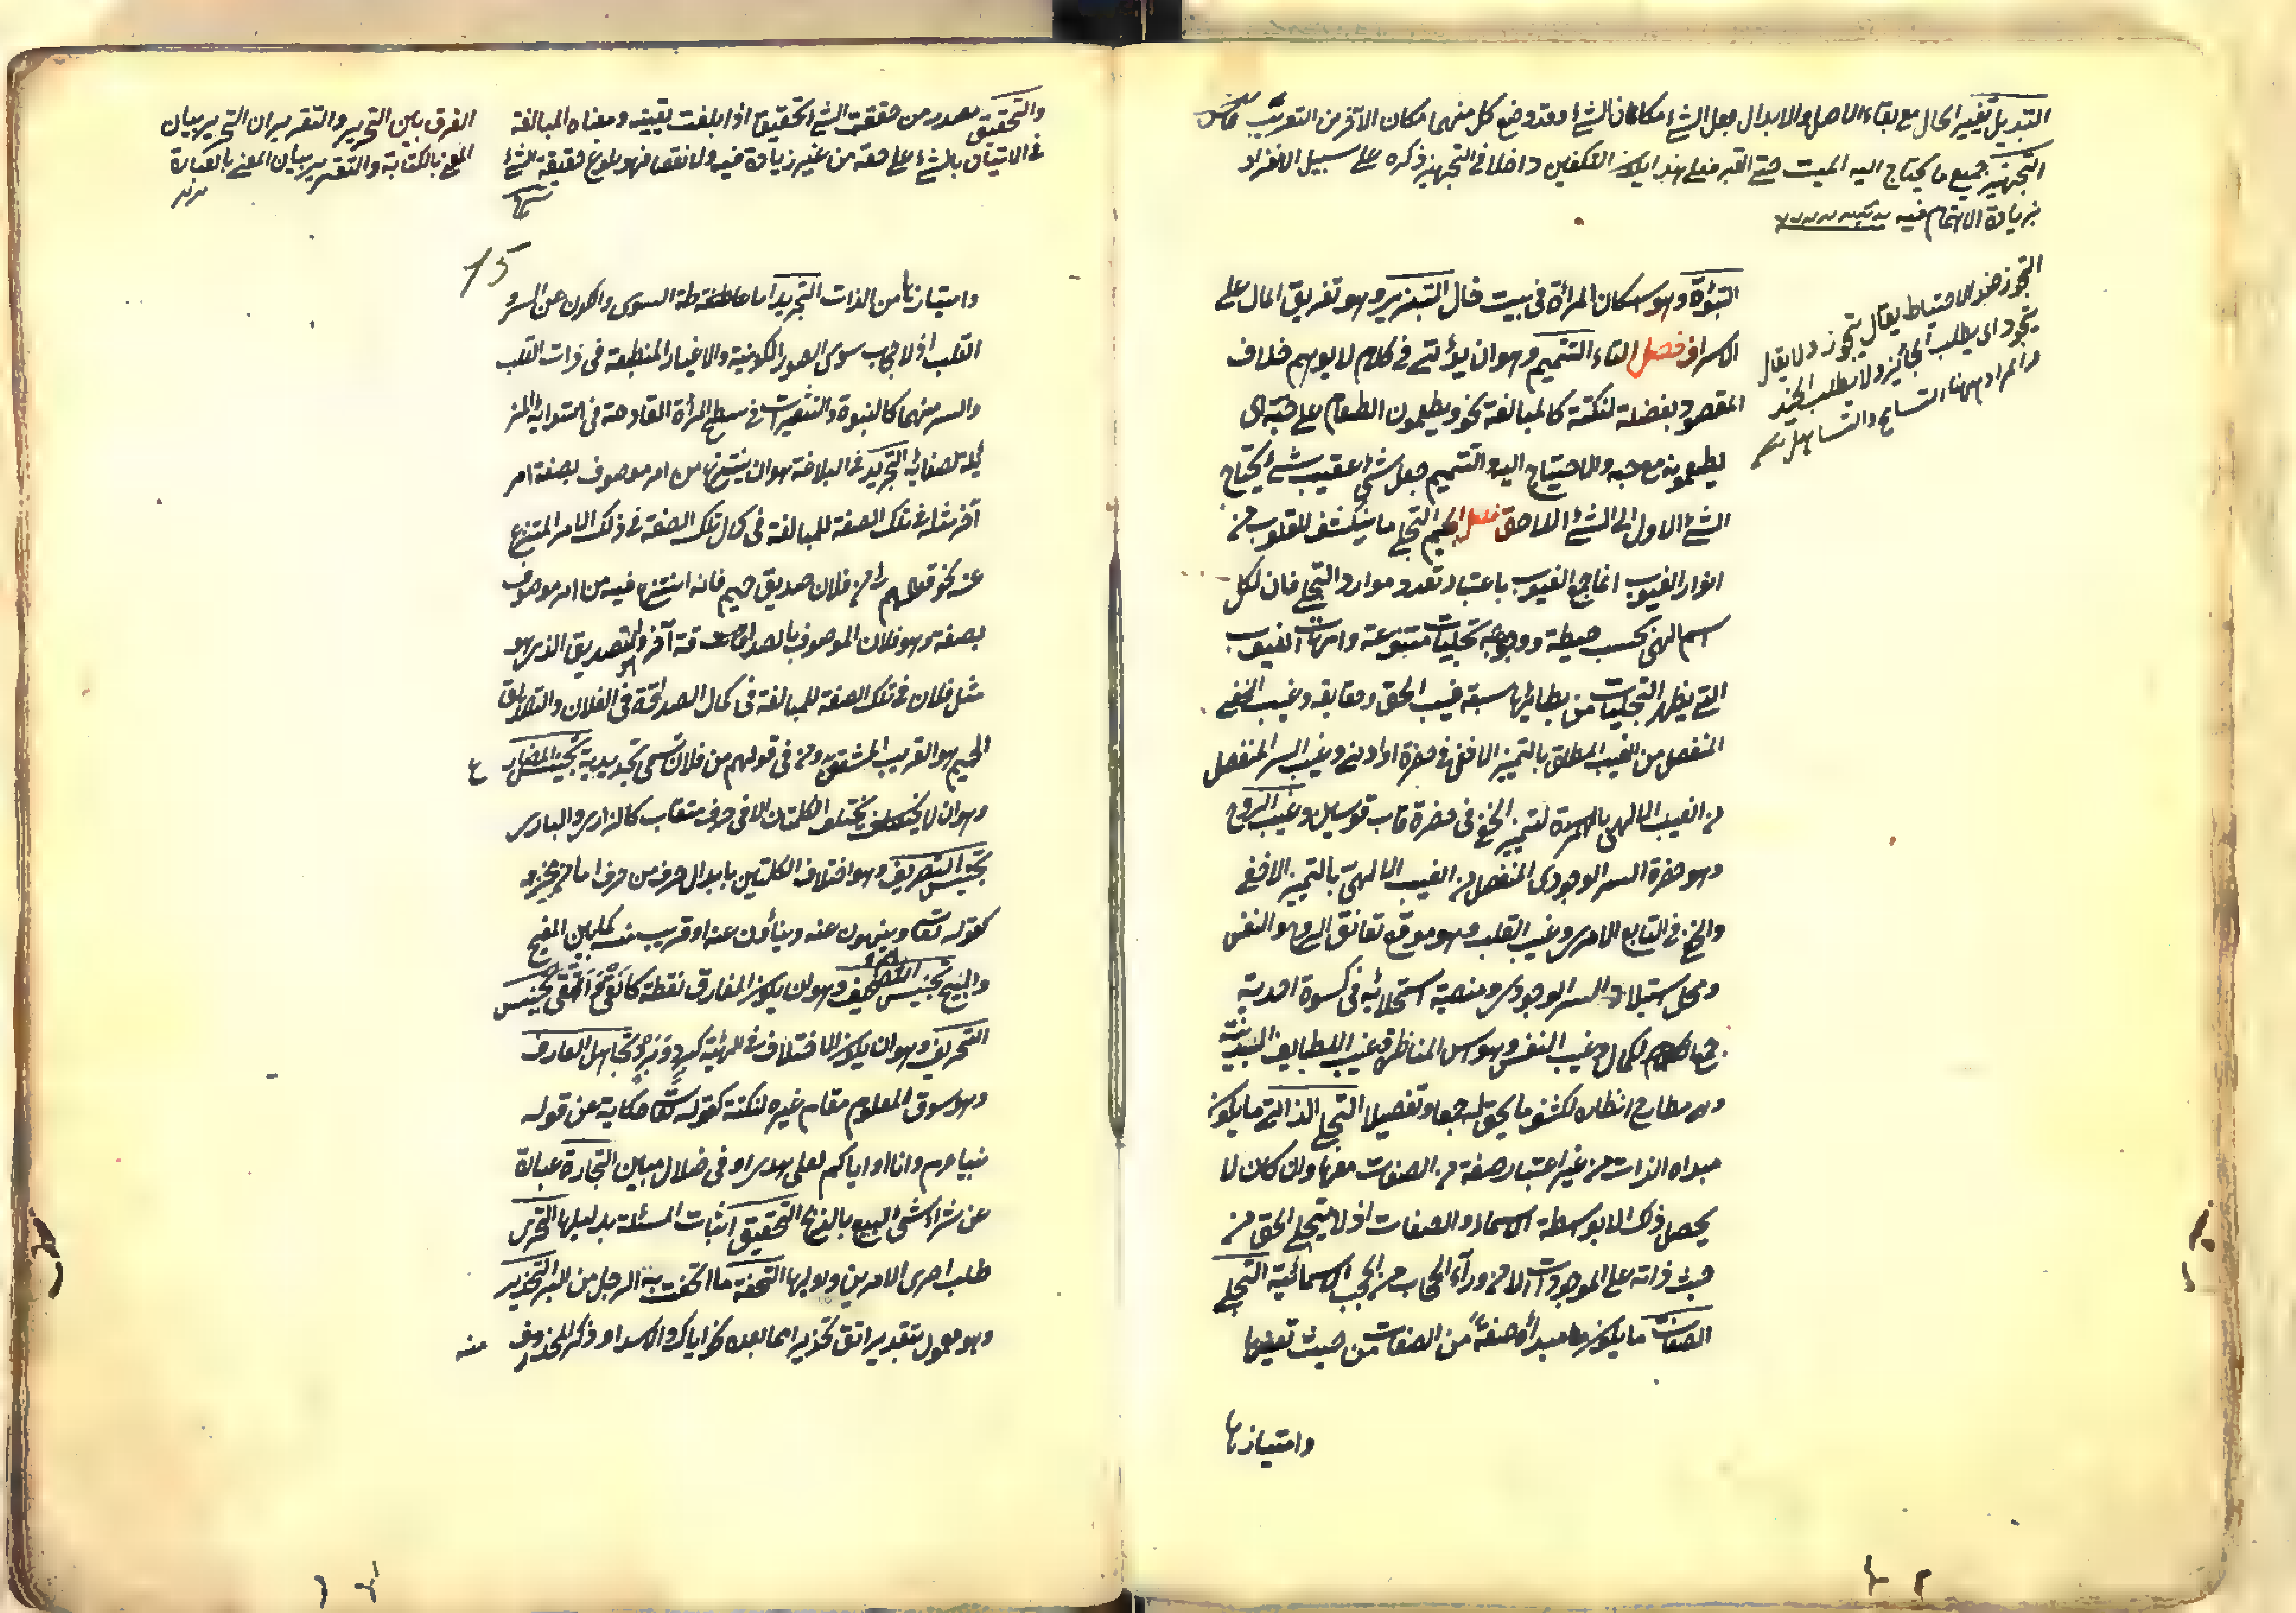 التبديل تغيير الحال مع بقاء الاصل والابدال جعل الشئ مكان الشئ وقد وضع كل منهما مكان الآخر من التعريب
التجهيز جميع ما يحتاج اليه الميت حتى القبر فعلى هذا يكون التكفين داخلا في التجهيز ذكره على سبيل الانفراد
بزيادة الاهتمام فيه
التجوز ضد الاحتياط يقال يتجوز ولا يقال
اى يطلب الجائز ولا يطلب
والمراد ههنا التسامح والتساهل
التبوئة وهو اسكان المرأة في بيت خال التبذير وهو تفريق المال على
الاسراف فصل التاء التتميم وهو ان يؤتى في كلام لا يوهم خلاف
المقصود بفضلة لنكتة كالمبالغة نحو ويطعمون الطعام على حبه اى
يطعمونه مع حبه والاحتياج اليه والتتميم جعل شئ عقيب شئ يحتاج
الشئ الاول الى الشئ اللاحق فصل الجيم التجلى ما ينكشف للقلوب من
انوار الغيوب انما جمع الغيوب باعتبار تعدد موارد التجلى فان لكل
اسم الهى بحسب حيطته ووجوهه تجليات متنوعة وامهات الغيوب
التى يظهر التجليات من بطائنها سبعة غيب الحق وحقايقه وغيب الخفى
المنفصل من الغيب المطلق بالتميز الاخفى في حضرة او ادنى وغيب السر المنفصل
من الغيب الالهى بالتميز الخفى في حضرة قاب قوسين وغيب الروح
وهو حضرة السر الوجودى المنفصل من الغيب الالهى بالتميز الاخفى
والخفى في التابع الامرى وغيب القلب وهو موقع تعانق الروح والنفس
ومحل استيلاد السر الوجودى ومنصة استجلائه في كسوة احدية
جمع الكمال وغيب النفس وهو انس المناظرة وغيب اللطايف البدنية
وهى مطارح انظاره لكشف ما يحق له جمعا وتفصيلا التجلى الذاتى ما يكون
مبداه الذات من غير اعتبار صفة من الصفات معها وان كان لا
يحصل ذلك الا بواسطة الاسماء والصفات اذ لا يتجلى الحق من
حيث ذاته على الموجودات الا من وراء الحجاب من الحجب الاسمائية التجلى
الصفات ما يكون مبدأه صفة من الصفات من حيث تعينها
وامتيازها
والتحقيق مصدر من حققت الشئ تحقيقا اذا بلغت يقينه ومعناه المبالغة
في الاتيان بالشئ على حقه من غير زيادة فيه ولا نقصا فهو بلوغ حقيقة الشئ
الفرق بين التحرير والتقرير ان التحرير بيان
المعنى بالكتابة والتقرير بيان المعنى بالعبارة
15
وامتيازها من الذات التجريد اماطة السوى والكون عن السر
القلب اذ لا حجاب سوى الصور الكونية والاغيار المنطبعة في ذات القلب
والسر فيهما كالنبوة والتشعيرات في سطح المرأة القادحة في استوائه المز
يلة لصفائه التجريد في البلاغة هو ان ينتزع من امر موصوف بصفة امر
آخر مثله في تلك الصفة للمبالغة في كمال تلك الصفة في ذلك الامر المنتزع
عنه نحو قولهم لى من فلان صديق حميم فانه انتزع فيه من امر موصوف
بصفة وهو فلان الموصوف بالصداقة آخر وهو الصديق الذى هو
مثل فلان في تلك الصفة للمبالغة في كمال الصداقة في الفلان والصديق
الحميم هو القريب المشفق ومن في قولهم من فلان تسمى تجريدية تجنيس المضارع
وهو ان لا يختلف الكلمتان الا في حرف متقارب كالدارى والبارى
تجنيس التصريف وهو اختلاف الكلمتين بابدال حرف من حرف اما من مخرجه
كقوله تعالى وينهون عنه وينأون عنه او قريب منه كما بين المفيح
والمبيح تجنيس التصحيف وهو ان يكون الفارق نقطة كانقى اتقى تجنيس
التحريف وهو ان يكون الاختلاف في الهيئة كبرد وبرد تجاهل العارف
وهو سوق المعلوم مقام غيره لنكتة كقوله تعالى حكاية عن قوله
نبينا عم وانا او اياكم لعلى هدى او في ضلال مبين التجارة عبارة
عن شراء شئ للبيع بالربح التحقيق اثبات المسئلة بدليلها التحرى
طلب احرى الامرين واوليهما التحفة ما اتحفت به الرجل من البر التحذير
وهو معمول بتقدير اتق تحذيرا مما بعده نحو اياك والاسد او ذكر المحذر منه